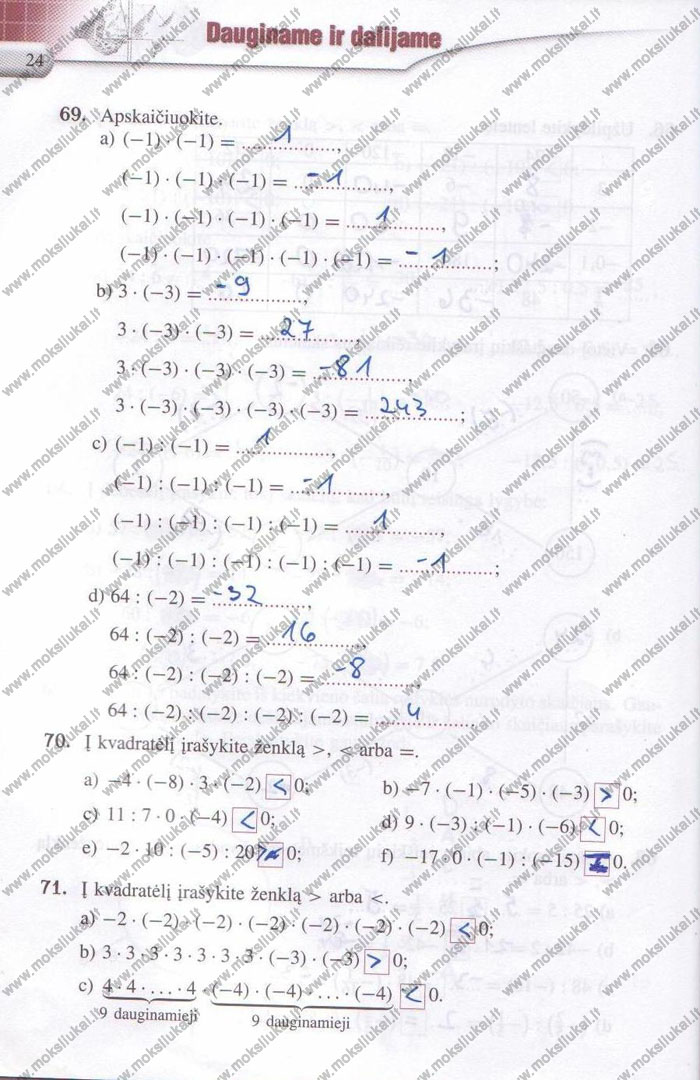 24
Dauginame ir dalijame
69. Apskaičiuokite.
a) (−1) · (−1) = 1,
(−1) · (−1) · (−1) = -1,
(−1) · (−1) · (−1) · (−1) = 1,
(−1) · (−1) · (−1) · (−1) · (−1) = -1;
b) 3 · (−3) = -9,
3 · (−3) · (−3) = 27,
3 · (−3) · (−3) · (−3) = -81,
3 · (−3) · (−3) · (−3) · (−3) = 243;
c) (−1) : (−1) = 1,
(−1) : (−1) : (−1) = -1,
(−1) : (−1) : (−1) : (−1) = 1,
(−1) : (−1) : (−1) : (−1) : (−1) = -1;
d) 64 : (−2) = -32,
64 : (−2) : (−2) = 16,
64 : (−2) : (−2) : (−2) = -8,
64 : (−2) : (−2) : (−2) : (−2) = 4.
70. Į kvadratėlį įrašykite ženklą >, < arba =.
a) −4 · (−8) · 3 · (−2) < 0;
b) −7 · (−1) · (−5) · (−3) > 0;
c) 11 : 7 · 0 · (−4) < 0;
d) 9 · (−3) : (−1) · (−6) < 0;
e) −2 · 10 : (−5) : 20 0;
f) −17 · 0 · (−1) : (−15) 0.
71. Į kvadratėlį įrašykite ženklą > arba <.
a) −2 · (−2) · (−2) · (−2) · (−2) · (−2) · (−2) < 0;
b) 3 · 3 · 3 · 3 · 3 · 3 · 3 · (−3) · (−3) > 0;
c) 4 · 4 · … · 4 · (−4) · (−4) · … · (−4) < 0.
9 dauginamieji 9 dauginamieji
www.moksliukai.lt